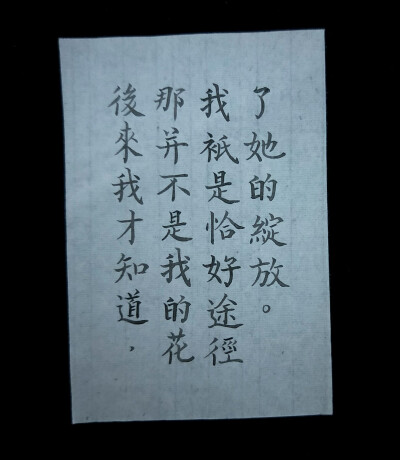 後來我才知道，
那并不是我的花
我衹是恰好途徑
了她的綻放。